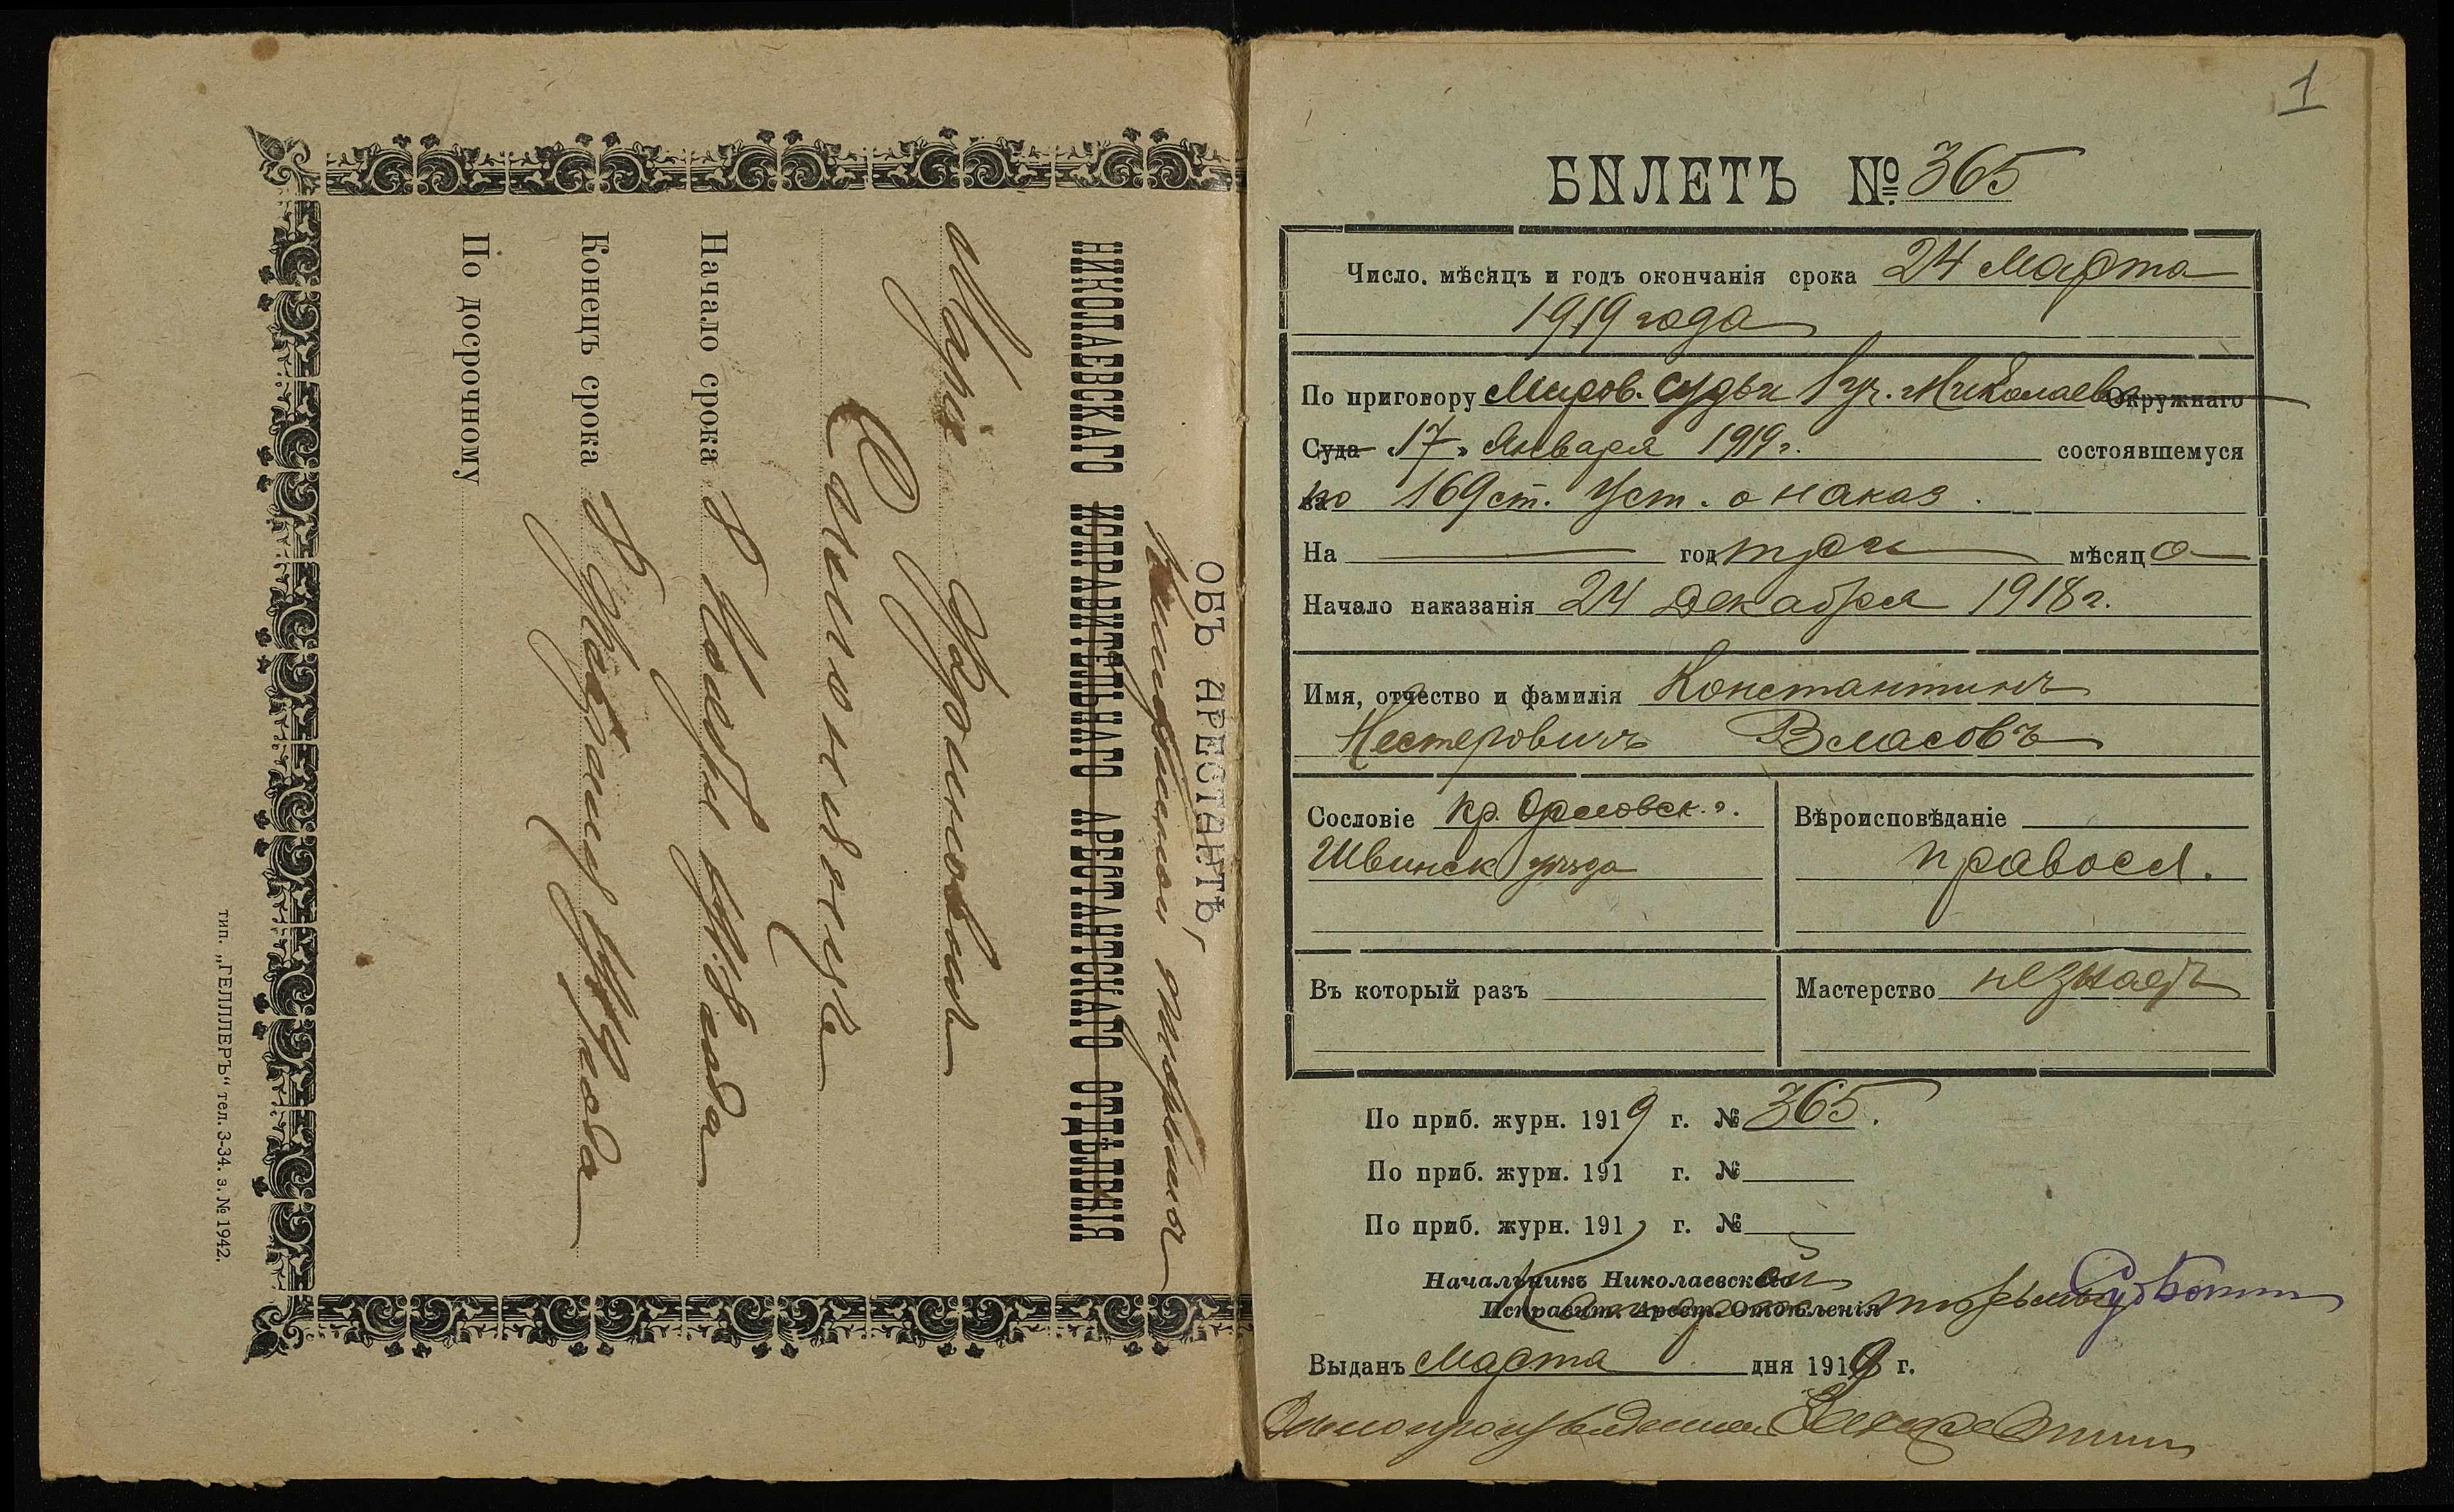 ОБЪ АРЕСТАНТѢ,
НИКОЛАЕВСКАГО ИСПРАВИТЕЛЬНАГО АРЕСТАНТСКАГО ОТДѢЛЕНІЯ
Начало срока 8 Ноября 1918 года
Конецъ срока 8
По досрочному
тип. „ГЕЛЛЕРЪ“ тел. 3-34. з. № 1942.
1
БИЛЕТЪ № 365
Число, мѣсяцъ и годъ окончанія срока 24 Марта
1919 года
По приговору Миров. Судьи 1 уч. Николаев Окружнаго
Суда „17„ Января 1919 г. состоявшемуся
по 169 ст. Уст. о наказ.
На год три мѣсяц а
Начало наказанія 24 Декабря 1918 г.
Имя, отчество и фамилія Константинъ
Нестеровичъ Власовъ
Сословіе кр. Орловск. г.
уѣзда
Вѣроисповѣданіе
правосл.
Въ который разъ
Мастерство не знаетъ
По приб. журн. 1919 г. № 365.
По приб. журн. 191 г. №
По приб. журн. 191 г. №
Начальникъ Николаевской
Исправит. Арест. Отдѣленія тюрьмы
Выданъ Марта дня 1919 г.